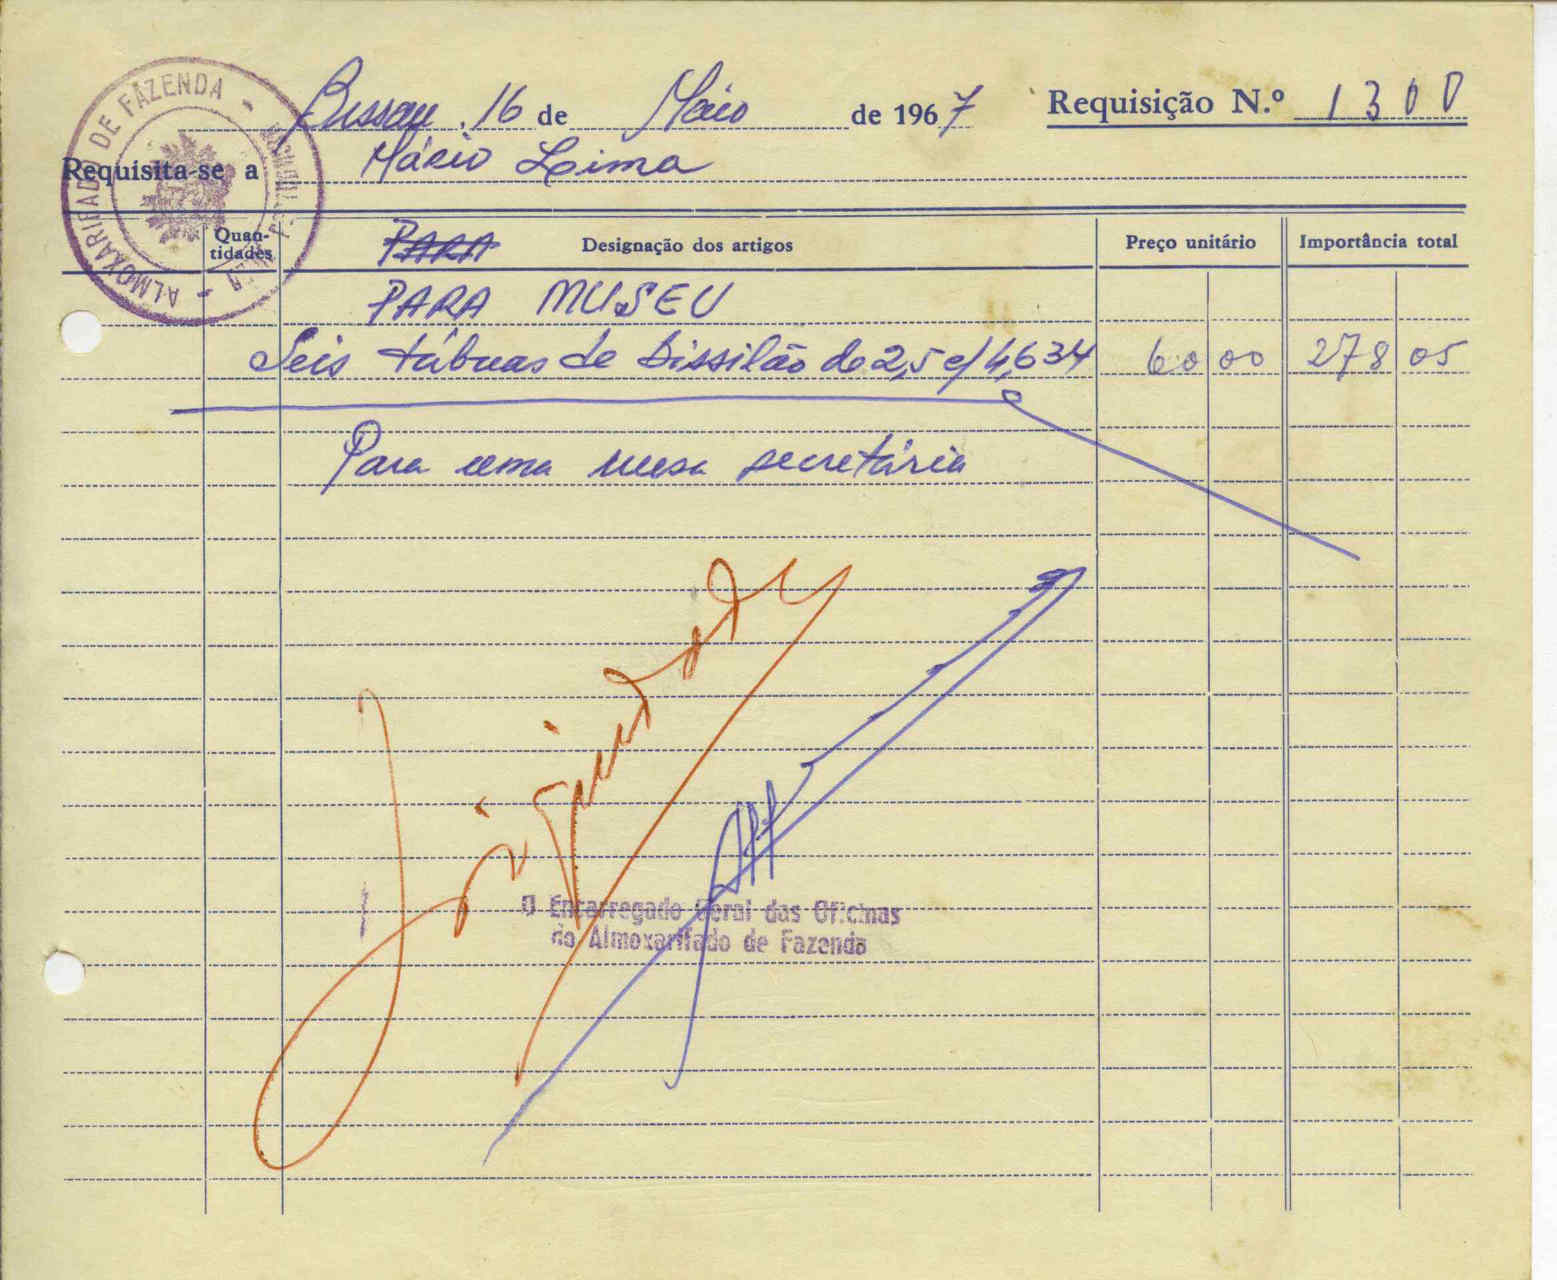 Bissau, 16 de Máio de 1967 Requisição N.º 1300
Requisita-se a Mário Lima
ALMOXARIFADO DE FAZENDA
Quan-tidades PARA Designação dos artigos Preço unitário Importância total
PARA MUSEU
Seis tábuas de bissilão de 2,5 c/ 4,634 60 00 278 05
Para uma mesa secretária
O Encarregado Geral das Oficinas
do Almoxarifado de Fazenda